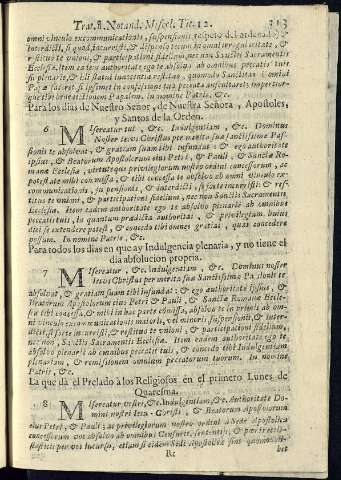 Trat. 8. Notand. Miscel. Tit. 12. 313
omni vinculo excommunicationis, suspensionis
interdicti, si quod incurristi, & dispenso tecum in omni irregularitate, &
restituo te unioni, & participationi fidelium, nec non Sanctis Sacramentis
Ecclesiæ. Item eadem authoritate ego te absolvo ab omnibus peccatis tuis
in nomine Patris, &c.
Para los dias de Nuestro Señor, de Nuestra Señora, Apostoles,
y Santos de la Orden.
6. Misereatur tui, &c. Indulgentiam, &c. Dominus
Noster Iesus Christus per merita suæ Sanctissimæ Passio
nis te absolvat, & gratiam suam tibi infundat: & ego authoritate
ipsius, & Beatorum Apostolorum eius Petri, & Pauli, & Sanctæ Ro-
manæ Ecclesiæ, virtuteque privilegiorum nostro ordini concessorum, ac
potestate mihi commissa, & tibi concessa te absolvo ab omni vinculo ex-
communicationis, suspensionis, & interdicti, si forte incurristi & res-
tituo te unioni, & participationi fidelium, nec non Sanctis Sacramentis
Ecclesiæ. Item eadem authoritate ego te absolvo plenarie ab omnibus
peccatis tuis, in quantum prædicta authoritas, & privilegium huius
diei se extendere potest, & concedo tibi omnes gratias, quas concedere
possum. In nomine Patris, &c.
Para todos los dias en que ay Indulgencia plenaria, y no tiene el
dia absolucion propria.
7. Misereatur, &c. Indulgentiam, &c. Dominus noster
Iesus Christus per merita suæ Sanctissimæ Passionis te
absolvat, & gratiam suam tibi infundat: & ego authoritate ipsius, &
Beatorum Apostolorum eius Petri & Pauli, & Sanctæ Romanæ Eccle-
siæ tibi concessa, & mihi in hac parte commissa, absolvo te in primis ab om-
ni vinculo excommunicationis maioris, vel minoris suspensionis, & inter-
dicti, si forte incurristi, & restituo te unioni, & participationi fidelium,
nec non, Sanctis Sacramentis Ecclesiæ. Item eadem authoritate ego te
absolvo plenarie ab omnibus peccatis tuis, & concedo tibi Indulgentiam
plenariam, & remissionem omnium peccatorum tuorum. In nomine
Patris, &c.
La que dà el Prelado à los Religiosos en el primero Lunes de
Quaresma.
8. Misereatur vestri, &c. Indulgentiam, &c. Authoritate Do-
mini nostri Iesu-Christi, & Beatorum Apostolorum
eius Petri, & Pauli, ac privilegiorum nostro ordini a Sede Apostolica
concessorum vos absolvo ab omnibus Censuris, sententijs, & pœnis eccle-
siasticis per vos incursis, etiam si eidem Sedi Apostolicæ sint
Rr